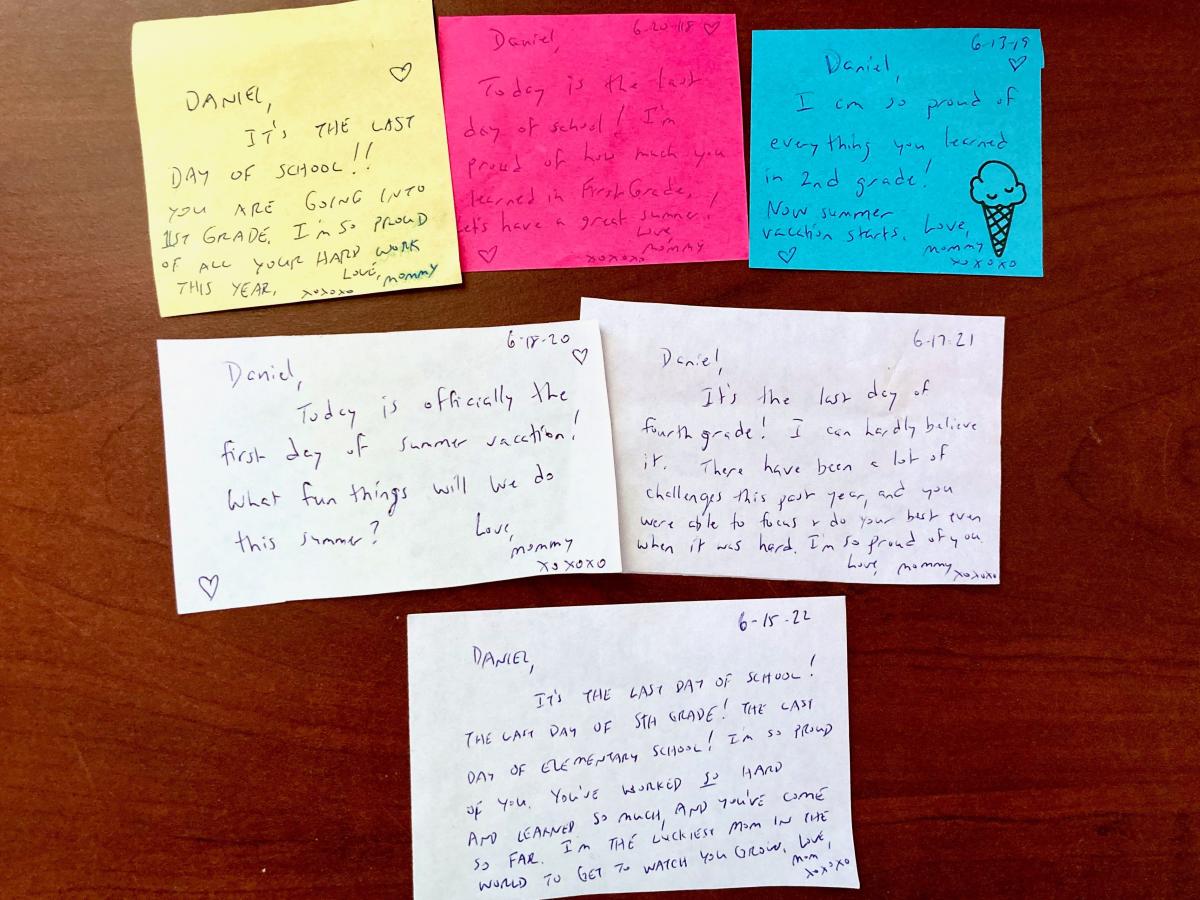 DANIEL,
IT'S THE LAST
DAY OF SCHOOL!!
YOU ARE GOING INTO
1ST GRADE. I'M SO PROUD
OF ALL YOUR HARD WORK
THIS YEAR.
LOVE,
mommy
xoxoxo
6-20-18
Daniel,
Today is the last
day of school! I'm
proud of how much you
learned in First Grade.
Let's have a great summer!
Love
mommy
xoxoxo
6-13-19
Daniel,
I am so proud of
everything you learned
in 2nd grade!
Now summer
vacation starts.
Love,
mommy
xoxoxo
6-18-20
Daniel,
Today is officially the
first day of summer vacation!
What fun things will we do
this summer?
Love,
mommy
xoxoxo
6-17-21
Daniel,
It's the last day of
fourth grade! I can hardly believe
it. There have been a lot of
challenges this past year, and you
were able to focus & do your best even
when it was hard. I'm so proud of you.
Love, mommy
xoxoxo
6-15-22
DANIEL,
IT'S THE LAST DAY OF SCHOOL!
THE LAST DAY OF 5TH GRADE! THE LAST
DAY OF ELEMENTARY SCHOOL! I'M SO PROUD
OF YOU. YOU'VE WORKED SO HARD
AND LEARNED SO MUCH, AND YOU'VE COME
SO FAR. I'M THE LUCKIEST MOM IN THE
WORLD TO GET TO WATCH YOU GROW. LOVE,
mom,
xoxoxo